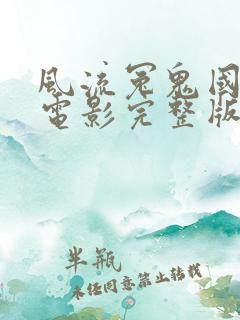 風流冤鬼國
電影完整版
半瓶
未經同意禁止轉載